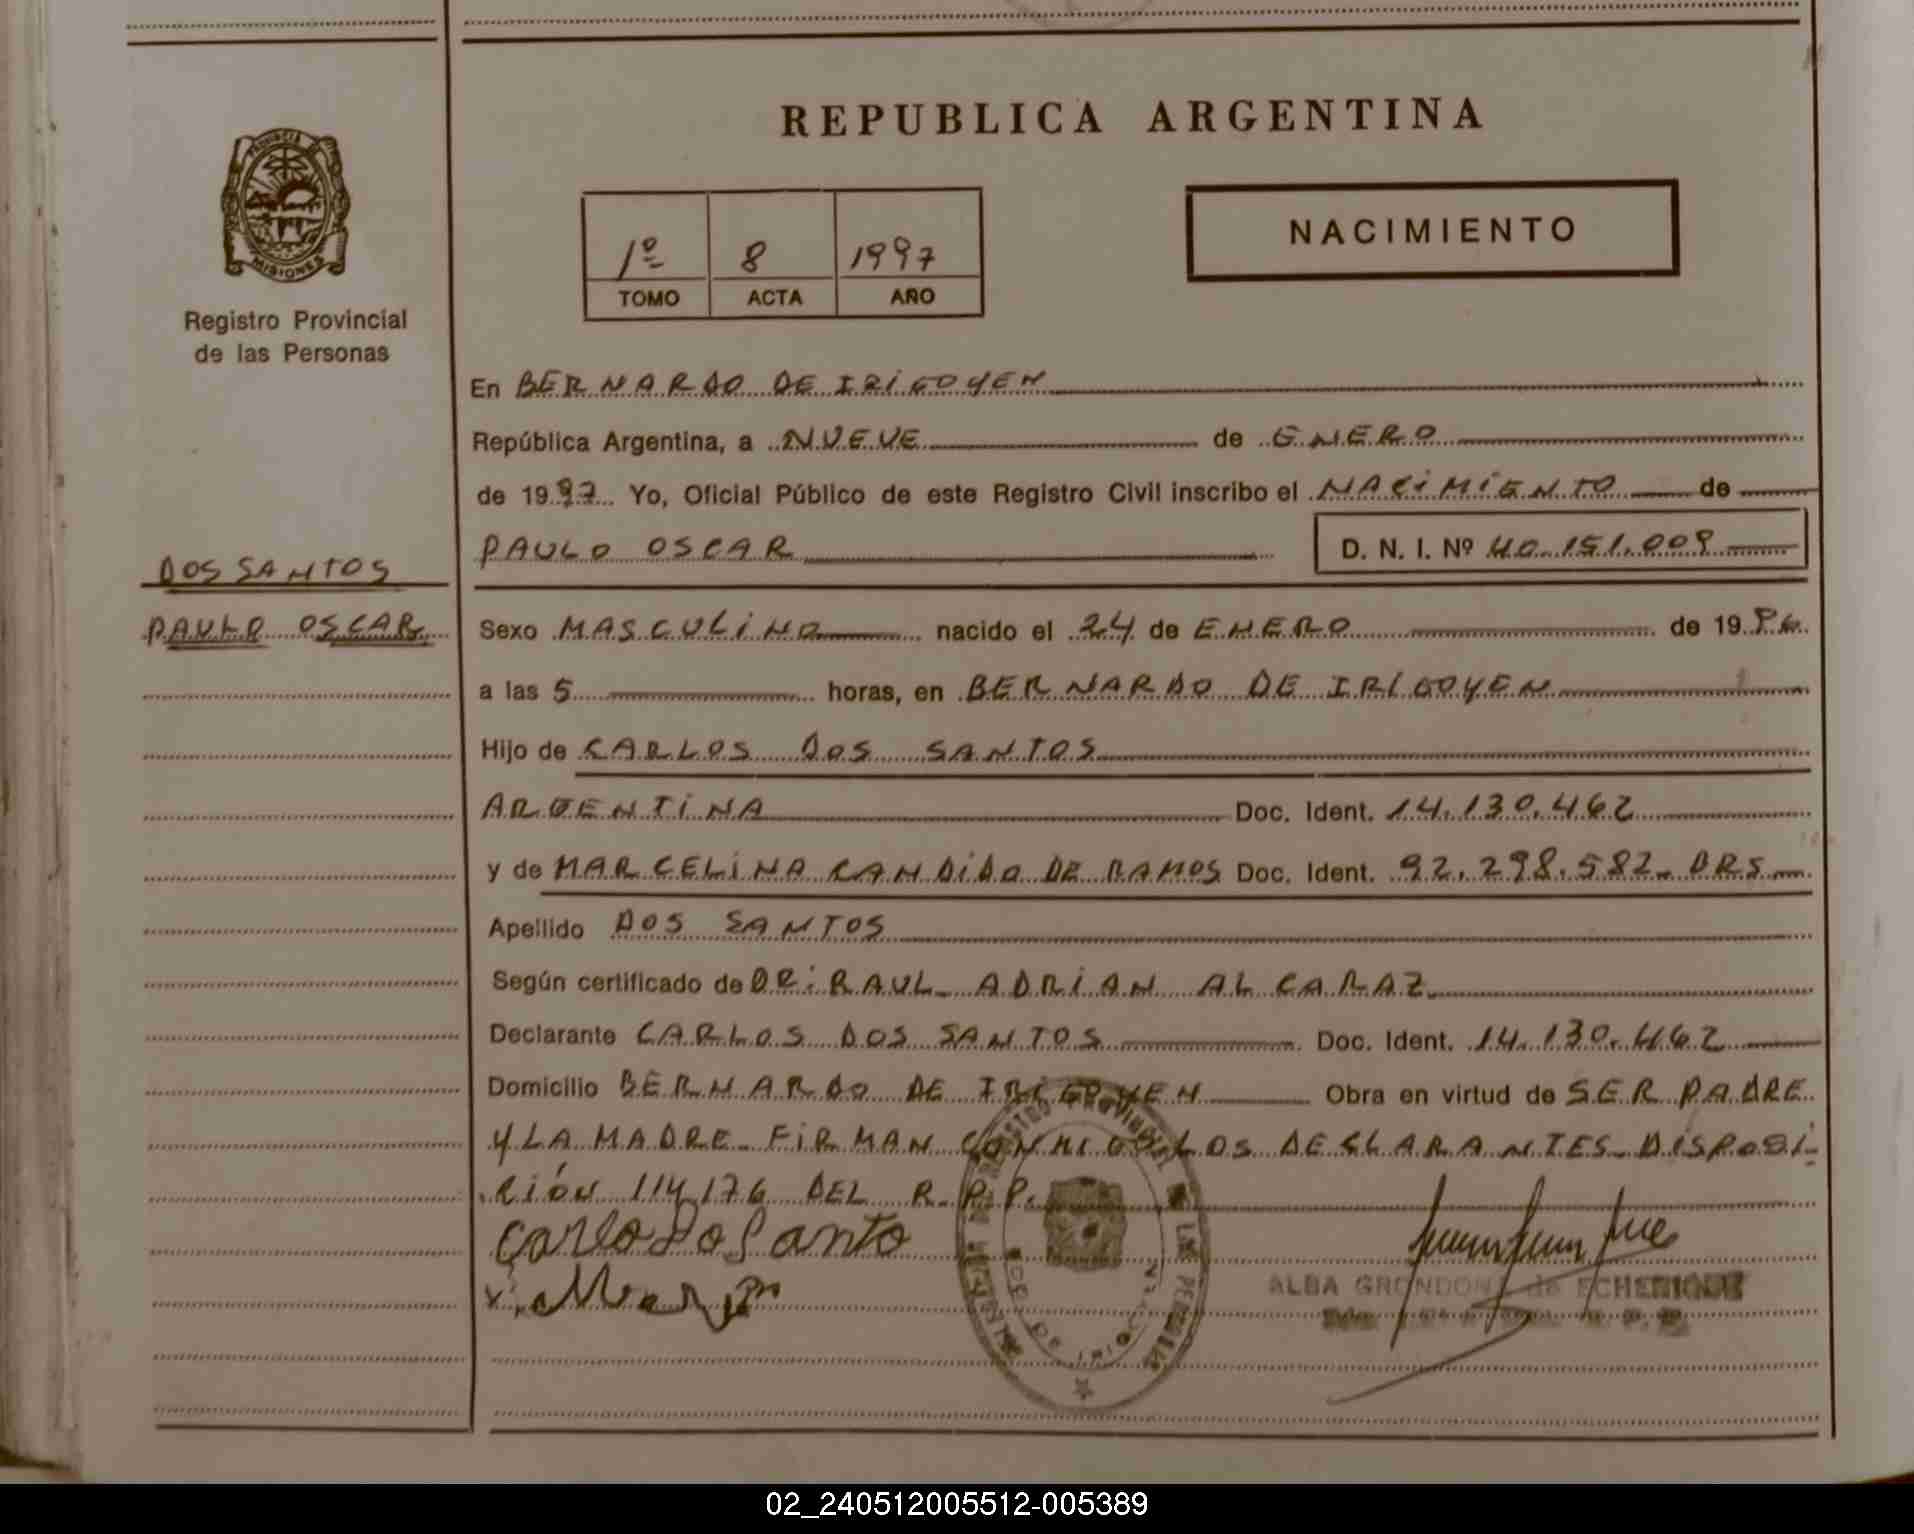 REPUBLICA ARGENTINA
PROVINCIA DE
MISIONES
Registro Provincial
de las Personas
1º 8 1997
TOMO ACTA AÑO
NACIMIENTO
En BERNARDO DE IRIGOYEN
República Argentina, a NUEVE de ENERO
de 1997 Yo, Oficial Público de este Registro Civil inscribo el NACIMIENTO de
PAULO OSCAR D. N. I. Nº 40.151.009
DOS SANTOS
PAULO OSCAR
Sexo MASCULINO nacido el 24 de ENERO de 19
a las 5 horas, en BERNARDO DE IRIGOYEN
Hijo de CARLOS DOS SANTOS
ARGENTINA Doc. Ident. 14.130.462
y de MARCELINA CANDIDO DE RAMOS Doc. Ident. 92.298.582- BRS
Apellido DOS SANTOS
Según certificado de DR: RAUL ADRIAN ALCARAZ
Declarante CARLOS DOS SANTOS Doc. Ident. 14.130.462
Domicilio BERNARDO DE IRIGOYEN Obra en virtud de SER PADRE
Y LA MADRE FIRMAN CONMIGO LOS DECLARANTES DISPOSI-
CIÓN 114/176 DEL R.P.P.
Carlo do Santo
ALBA GRONDONA de ECHENIQUE
02_240512005512-005389